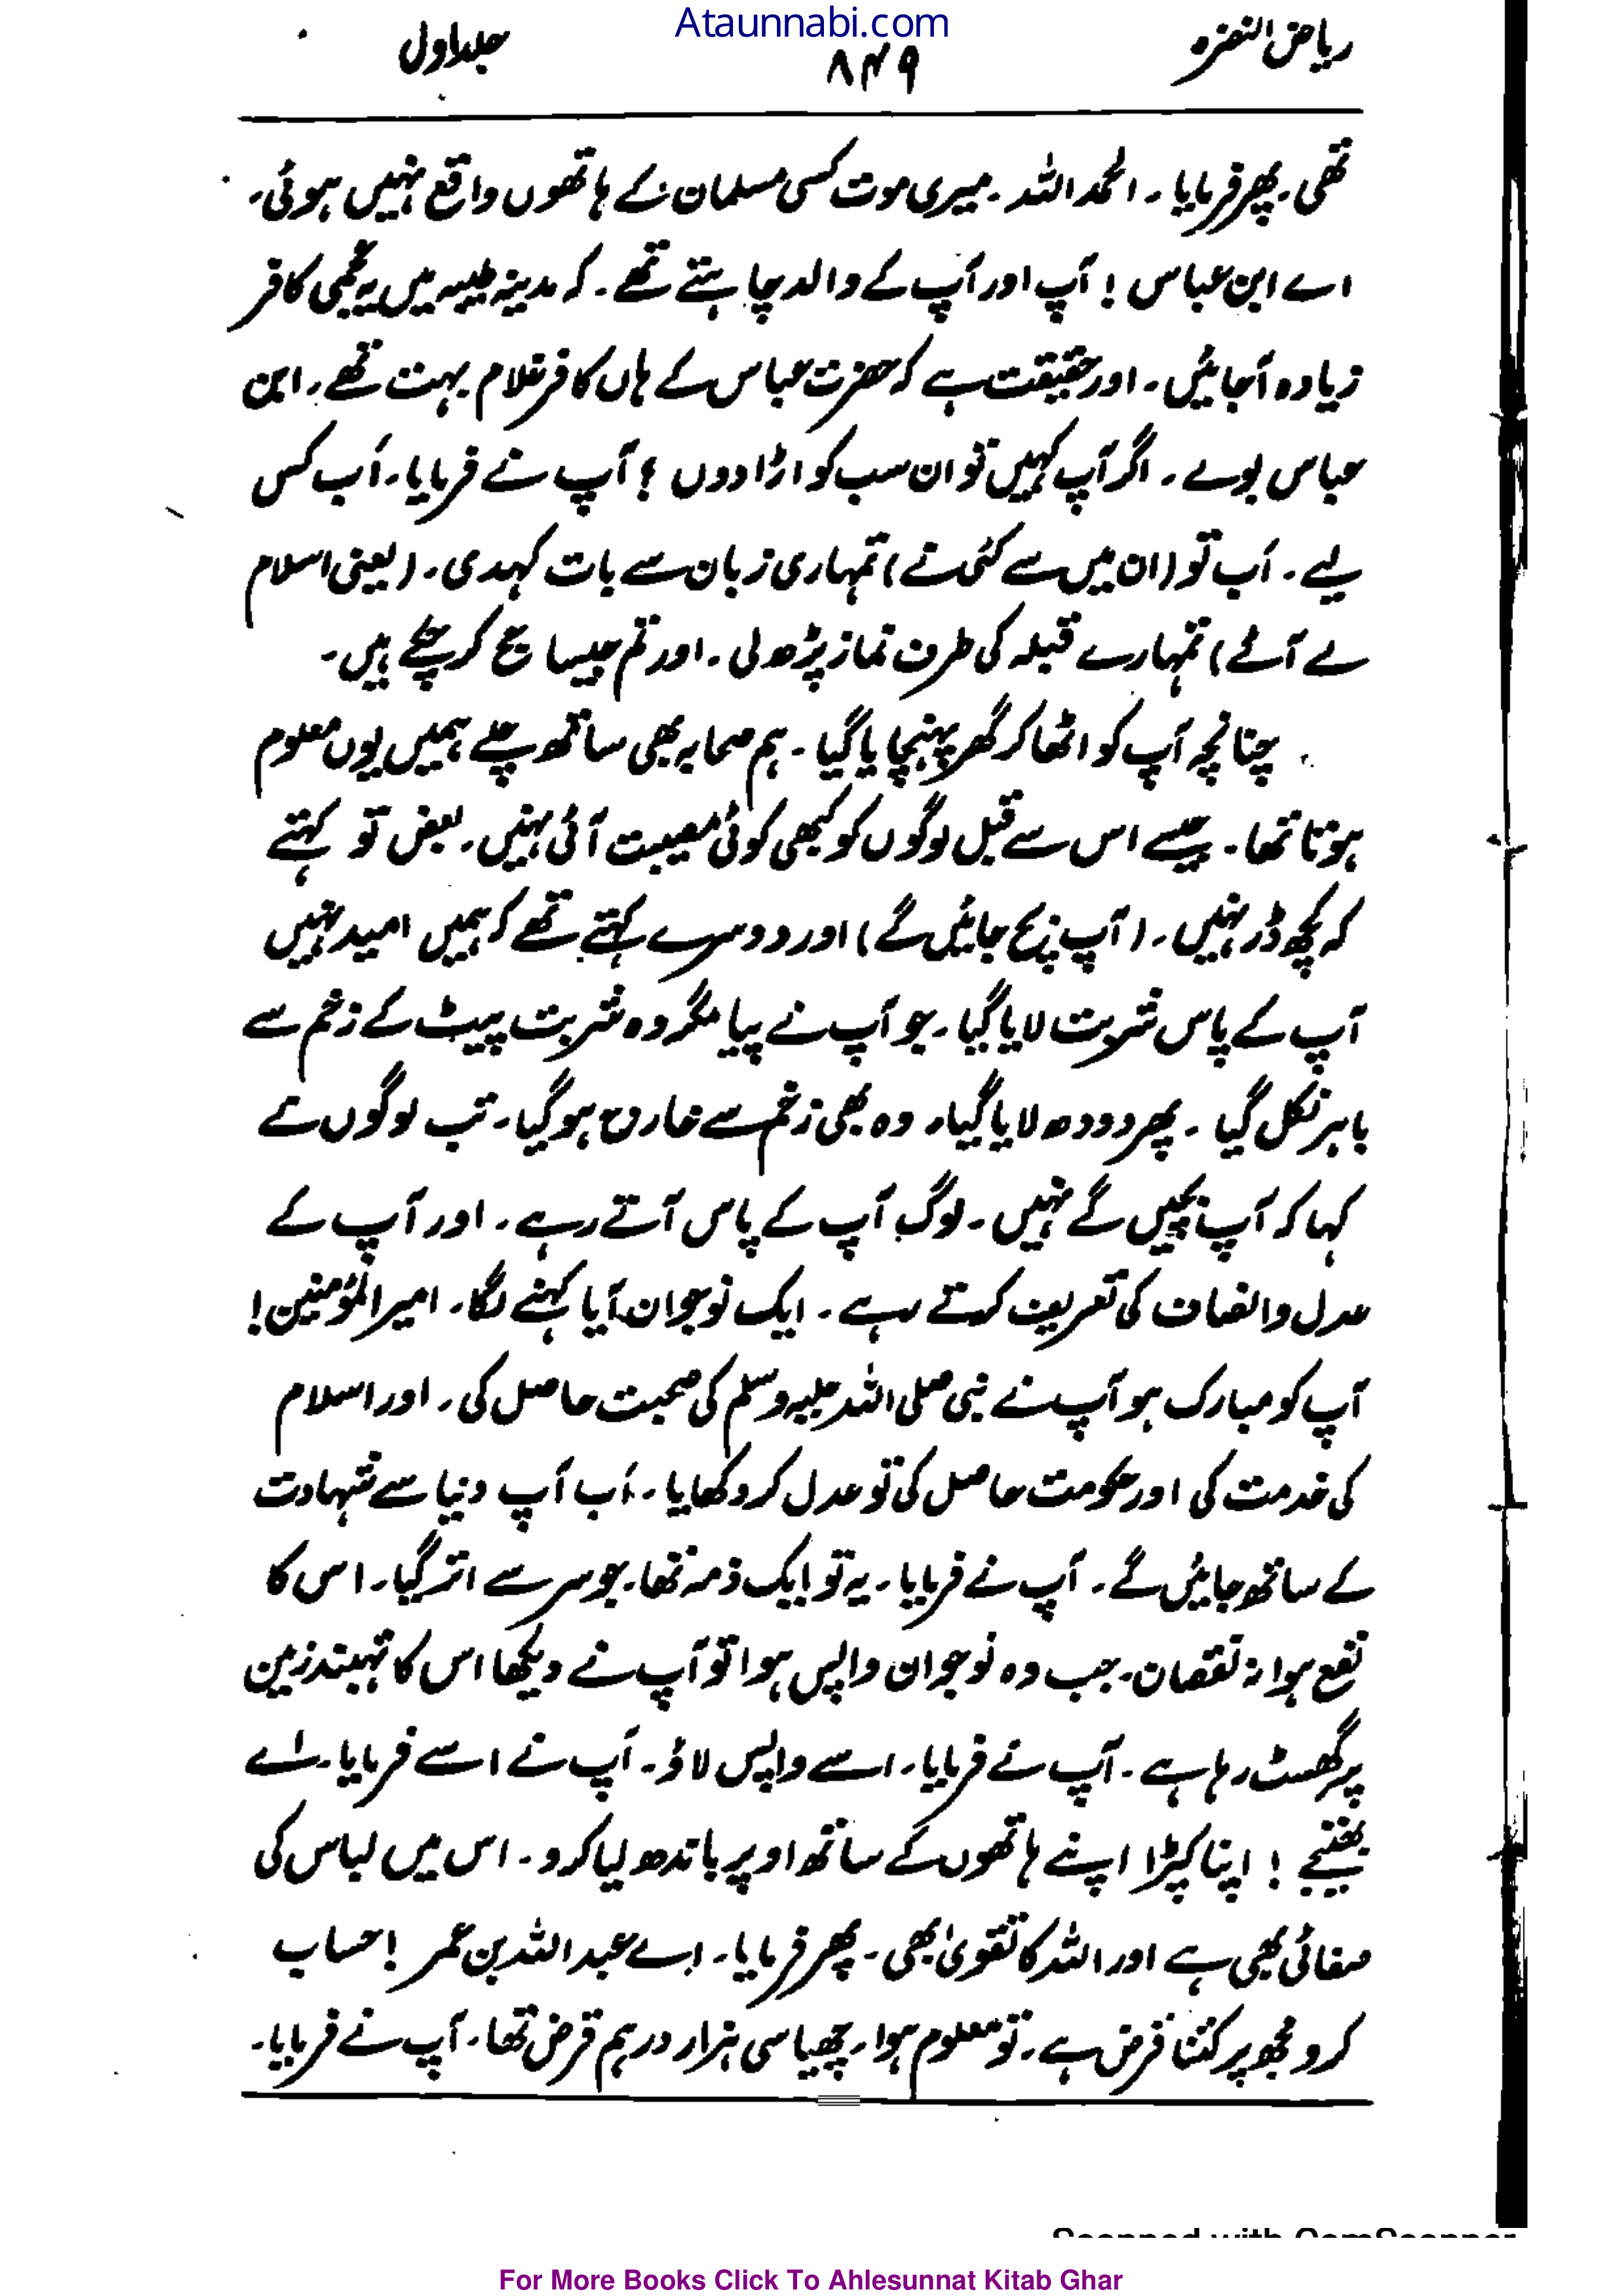 Ataunnabi.com
ریاض النضرہ ۸۴۹ جلد اول
تھی۔ پھر فرمایا۔ الحمد اللہ۔ میری موت کسی مسلمان کے ہاتھوں واقع نہیں ہوئی۔
اے ابن عباس! آپ اور آپ کے والد چاہتے تھے۔ کہ مدینہ طیبہ میں یہ عجمی کافر
زیادہ آجائیں۔ اور حقیقت ہے کہ حضرت عباس کے ہاں کافر غلام بہت تھے۔ ابن
عباس بولے۔ اگر آپ کہیں تو ان سب کو اڑا دوں؟ آپ نے فرمایا۔ اَب کس
لیے۔ اَب تو (ان میں سے کئی نے) تمہاری زبان سے بات کہدی۔ (یعنی اسلام
لے آئے) تمہارے قبلہ کی طرف نماز پڑھ لی۔ اور تم جیسا حج کر چکے ہیں۔
چنانچہ آپ کو اٹھا کر گھر پہنچایا گیا۔ ہم صحابہ بھی ساتھ چلے ہمیں یوں معلوم
ہوتا تھا۔ جیسے اس سے قبل لوگوں کو کبھی کوئی مصیبت آئی نہیں۔ بعض تو کہتے
کہ کچھ ڈر نہیں۔ (آپ بچ جائیں گے) اور دوسرے کہتے تھے کہ ہمیں امید نہیں
آپ کے پاس شربت لایا گیا۔ جو آپ نے پیا مگر وہ شربت پیٹ کے زخم سے
باہر نکل گیا۔ پھر دودھ لایا گیا۔ وہ بھی زخم سے خارج ہو گیا۔ تب لوگوں نے
کہا کہ آپ بچیں گے نہیں۔ لوگ آپ کے پاس آتے رہے۔ اور آپ کے
عدل و انصاف کی تعریف کرتے رہے۔ ایک نوجوان آیا کہنے لگا۔ امیر المؤمنین!
آپ کو مبارک ہو آپ نے نبی صلی اللہ علیہ وسلم کی صحبت حاصل کی۔ اور اسلام
کی خدمت کی اور حکومت حاصل کی تو عدل کر دکھایا۔ اَب آپ دنیا سے شہادت
کے ساتھ جائیں گے۔ آپ نے فرمایا۔ یہ تو ایک ذمہ تھا۔ جو سر سے اتر گیا۔ اس کا
نفع ہوا نہ نقصان۔ جب وہ نوجوان واپس ہوا تو آپ نے دیکھا اس کا تہبند زمین
پر گھسٹ رہا ہے۔ آپ نے فرمایا۔ اسے واپس لاؤ۔ آپ نے اسے فرمایا۔ اے
بھتیجے! اپنا کپڑا اپنے ہاتھوں کے ساتھ اوپر باندھ لیا کرو۔ اس میں لباس کی
صفائی بھی ہے اور اللہ کا تقویٰ بھی۔ پھر فرمایا۔ اے عبد اللہ بن عمر! حساب
کرو مجھ پر کتنا قرض ہے۔ تو معلوم ہوا۔ چھیاسی ہزار درہم قرض تھا۔ آپ نے فرمایا۔
Scanned with CamScanner
For More Books Click To Ahlesunnat Kitab Ghar